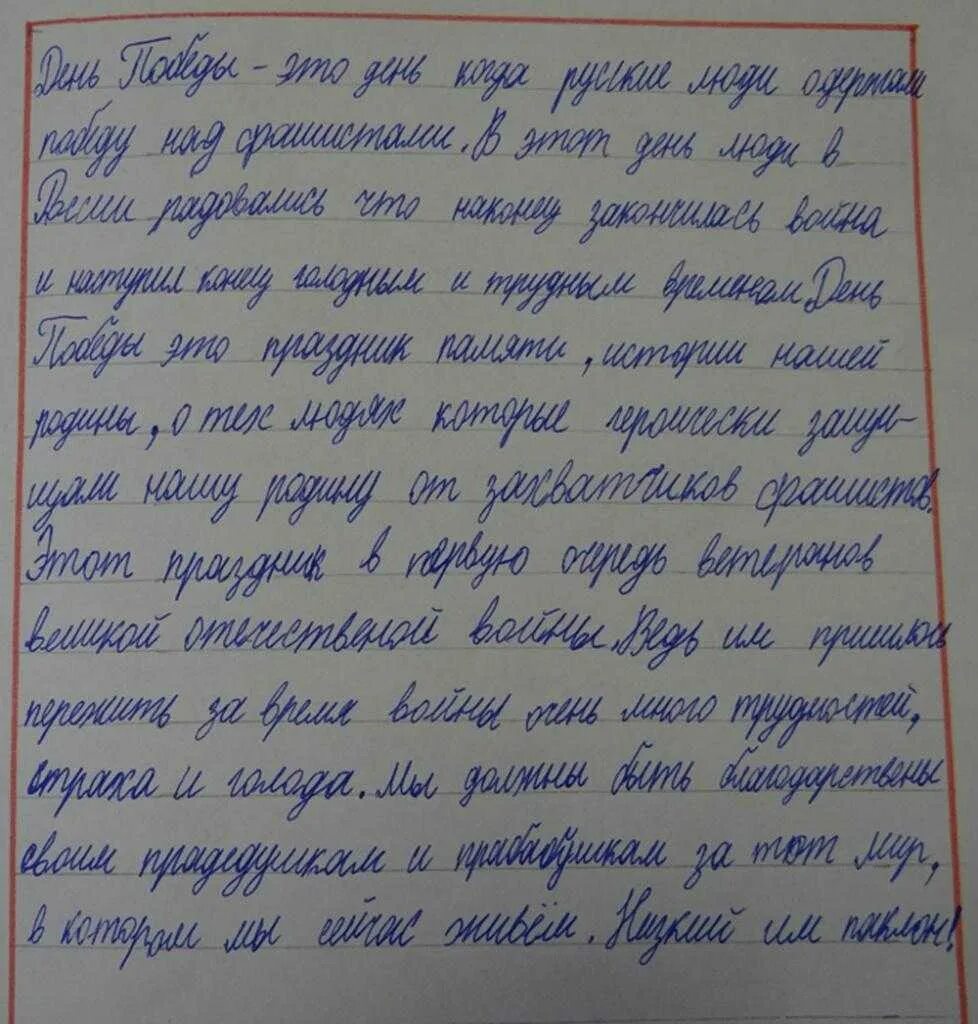 День Победы - это день когда русские люди одержали
победу над фашистами. В этот день люди в
России радовались что наконец закончилась война
и наступил конец голодным и трудным временам. День
Победы это праздник памяти, истории нашей
родины, о тех людях которые героически защи-
щали нашу родину от захватчиков фашистов.
Этот праздник в первую очередь ветеранов
великой отечественой войны. Ведь им пришлось
пережить за время войны очень много трудностей,
страха и голода. Мы должны быть благодарствены
своим прадедушкам и прабабушкам за тот мир,
в котором мы сейчас живём. Низкий им паклон!